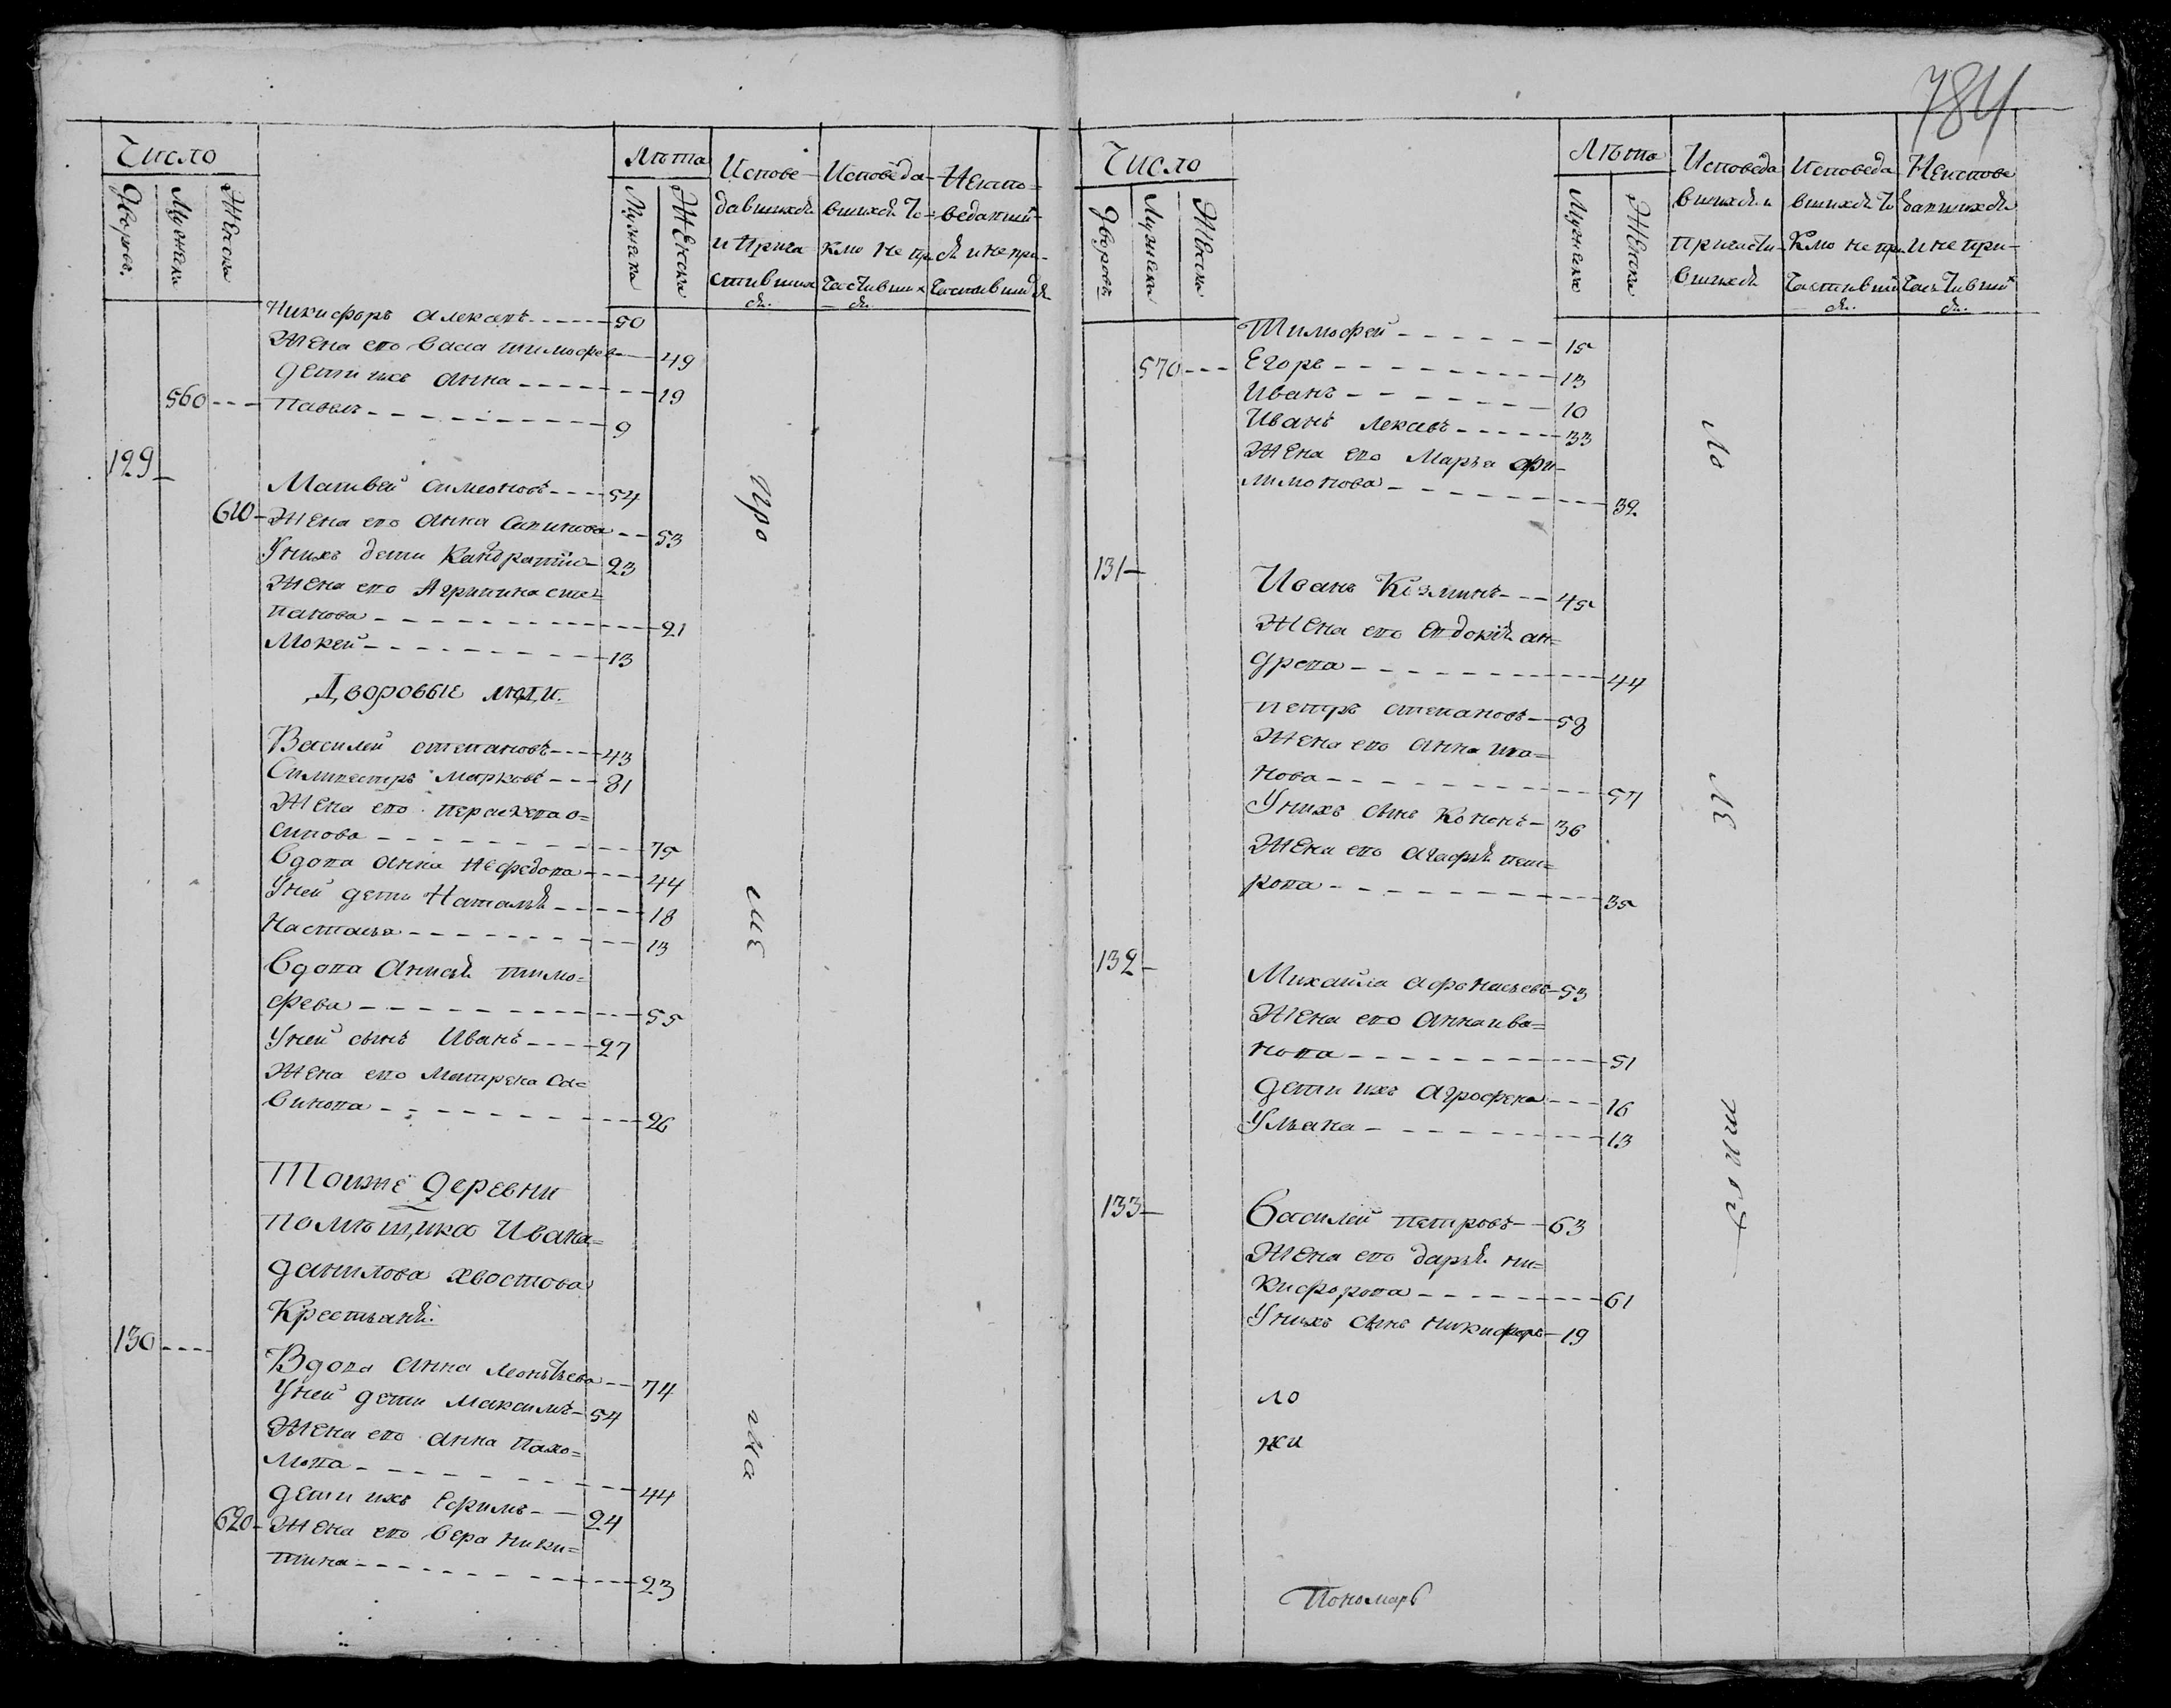 784
Число
Дворовъ.
Мужеска
Женска
Лѣта
Мужеска
Женска
Испове-
давшихся
и Прича
стивших
ся.
Исповеда-
вшихся то-
кмо не при
частивших
ся.
Неиспо-
ведавши-
ся и непри-
частившися
Никифоръ Алексевъ 50
Жена его Васса Тимофев 49
Дети ихъ Анна 19
560 Павелъ 9
129
Матвей Симеоновъ 54
610 Жена его Анна 53
Унихъ дети Кандратiй 23
Жена его Агрипина сте=
панова 21
Мокей 13
Дворовые люди.
Василей степановъ 43
Силивестръ Марковъ 81
Жена его Пераскева о=
сипова 75
Вдова Анна Нефедова 44
Уней дети Наталья 18
Настасья 13
Вдова Анисья тимо=
феева 55
Уней сынъ Иванъ 27
Жена его Матрена Са=
винова 26
Тоиже деревни
помѣщика Ивана
данилова хвостова
Крестьяня.
130
Вдова Анна Леонтьева 74
Уней дети Максимъ 54
Жена его Анна Пахо=
мова 44
дети ихъ Ефимъ 24
620 Жена его Вера Ники=
тина 23
Про
сие
на
Число
Дворовъ
Мужеска
Женска
Лѣта
Мужеска
Женска
Исповеда
вшихся и
Причасти-
вшихся
Исповеда
вшихся то
Кмо не при
частивши
ся.
Неиспове
давшихся
и непри-
частивши
ся.
Тимофей 15
570 Егоръ 13
Иванъ 10
Иванъ 33
Жена его Марья фи-
лимонова 32
131
Иванъ Козминъ 45
Жена его Евдокiя ан=
древа 44
петръ степановъ 58
Жена его Анна ива=
нова 57
Унихъ сынъ Кононъ 36
Жена его Агафья пет=
рова 35
132
Михайла Афонасьевъ 53
Жена его Анна ива=
нова 51
дети ихъ Агрофена 16
Ульана 13
133
Василей Петровъ 63
Жена его дарья ни=
кифорова 61
Унихъ сынъ никифоръ 19
ло
жи
Пономарь